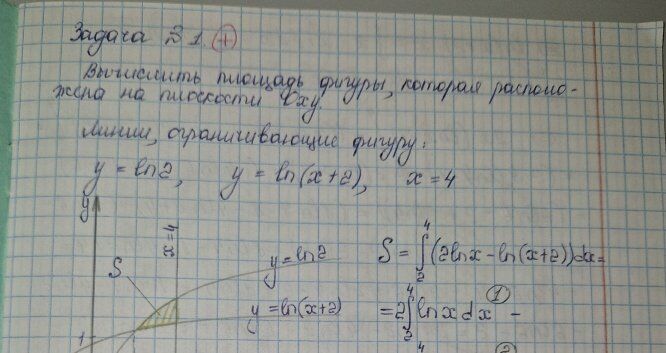 Задача №1 +
Вычислить площадь фигуры, которая располо-
жена на плоскости Oxy.
Линии, ограничивающие фигуру:
y = ln2, y = ln(x+2), x = 4
y
x=4
S
y=ln2
y=ln(x+2)
1
S = ∫₂⁴ (2lnx - ln(x+2))dx =
= 2∫₂⁴ lnxdx ① -
4 ②